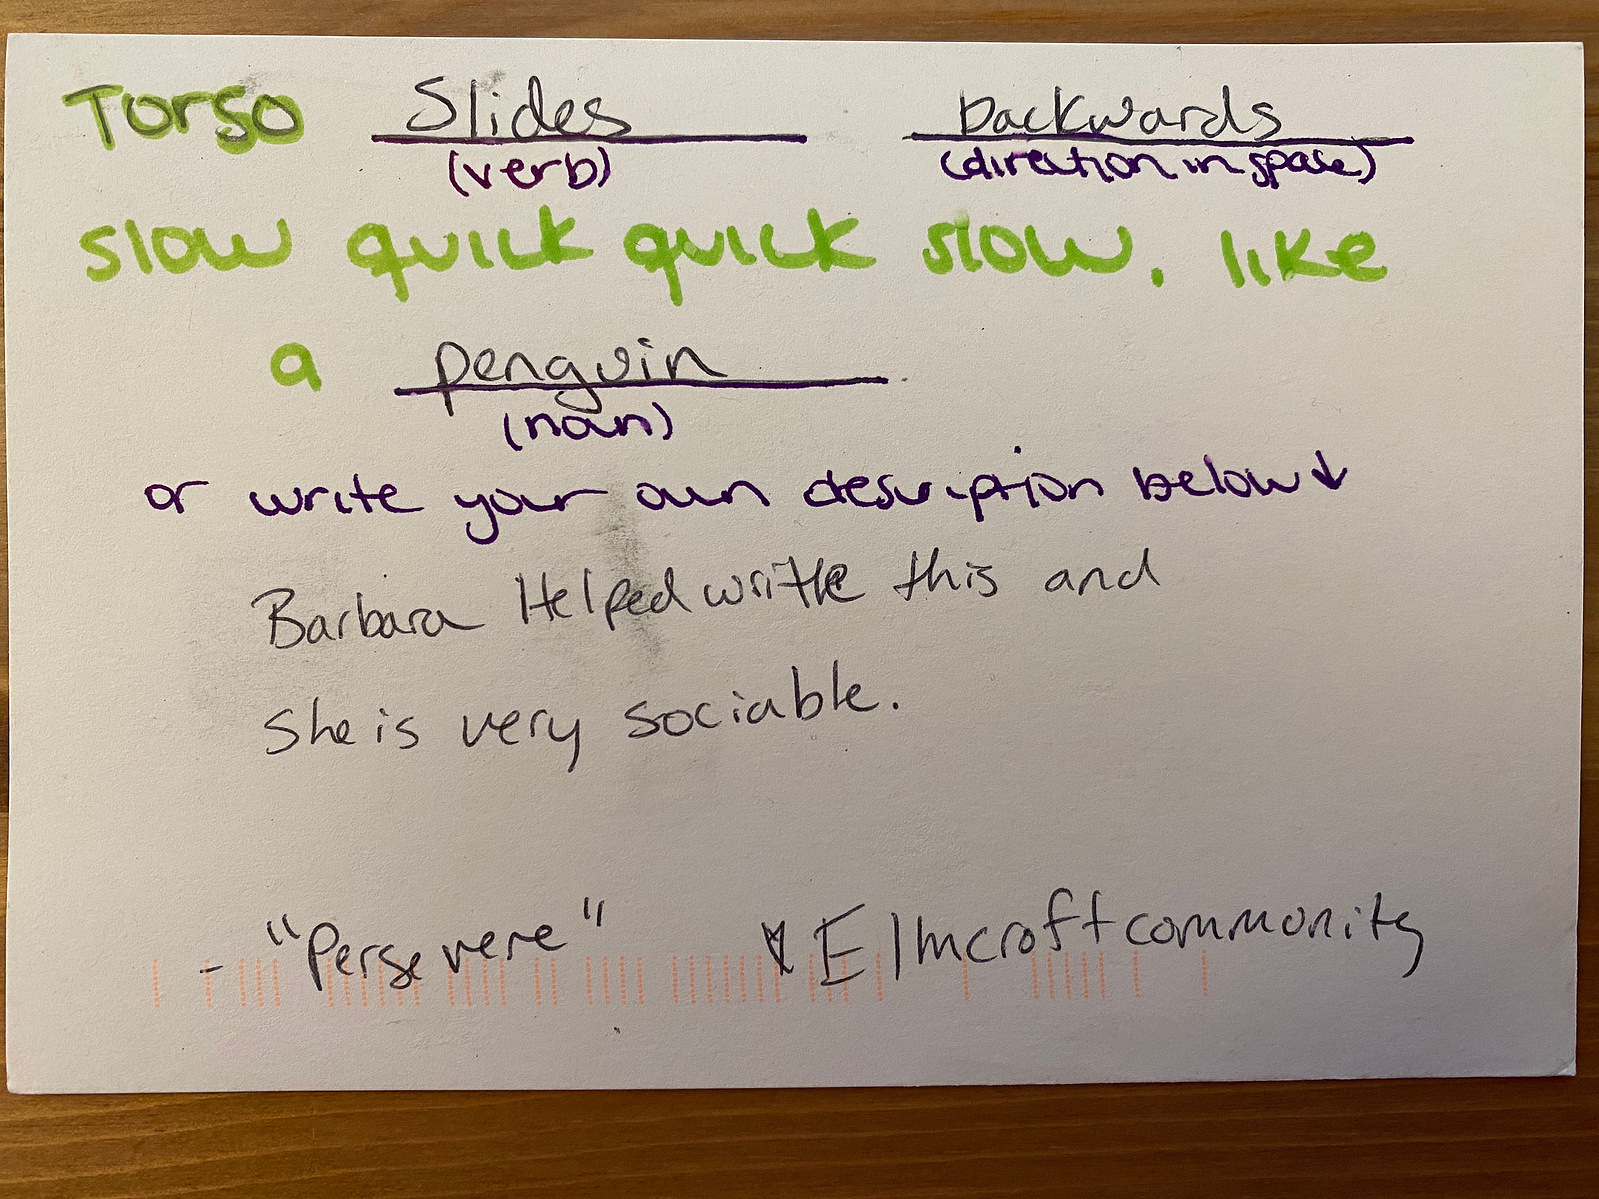 Torso Slides backwards
(verb) (direction in space)
slow quick quick slow. like
a penguin
(noun)
or write your own description below↓
Barbara Helped writte this and
She is very sociable.
- "Persevere" Elmcroft community